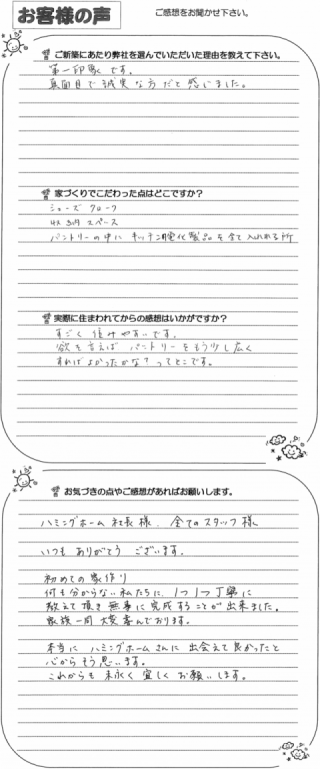 お客様の声
ご感想をお聞かせ下さい。
ご新築にあたり弊社を選んでいただいた理由を教えて下さい。
第一印象です。
真面目で誠実な方だと感じました。
家づくりでこだわった点はどこですか？
シューズクローク
収納スペース
パントリーの中にキッチン電化製品を全て入れれる所
実際に住まわれてからの感想はいかがですか？
すごく住みやすいです。
欲を言えばパントリーをもう少し広く
すればよかったかな？ってとこです。
お気づきの点やご感想があればお願いします。
ハミングホーム社長様、全てのスタッフ様
いつもありがとうございます。
初めての家作り
何も分からない私たちに、1つ1つ丁寧に
教えて頂き無事に完成することが出来ました。
家族一同大変喜んでおります。
本当にハミングホームさんに出会えて良かったと
心からそう思います。
これからも末永く宜しくお願いします。